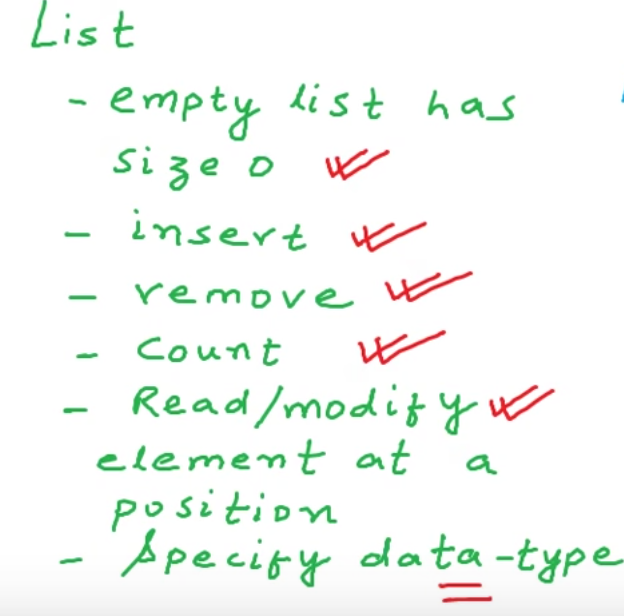 List
- empty list has
size 0
- insert
- remove
- Count
- Read/modify
element at a
position
- Specify data-type